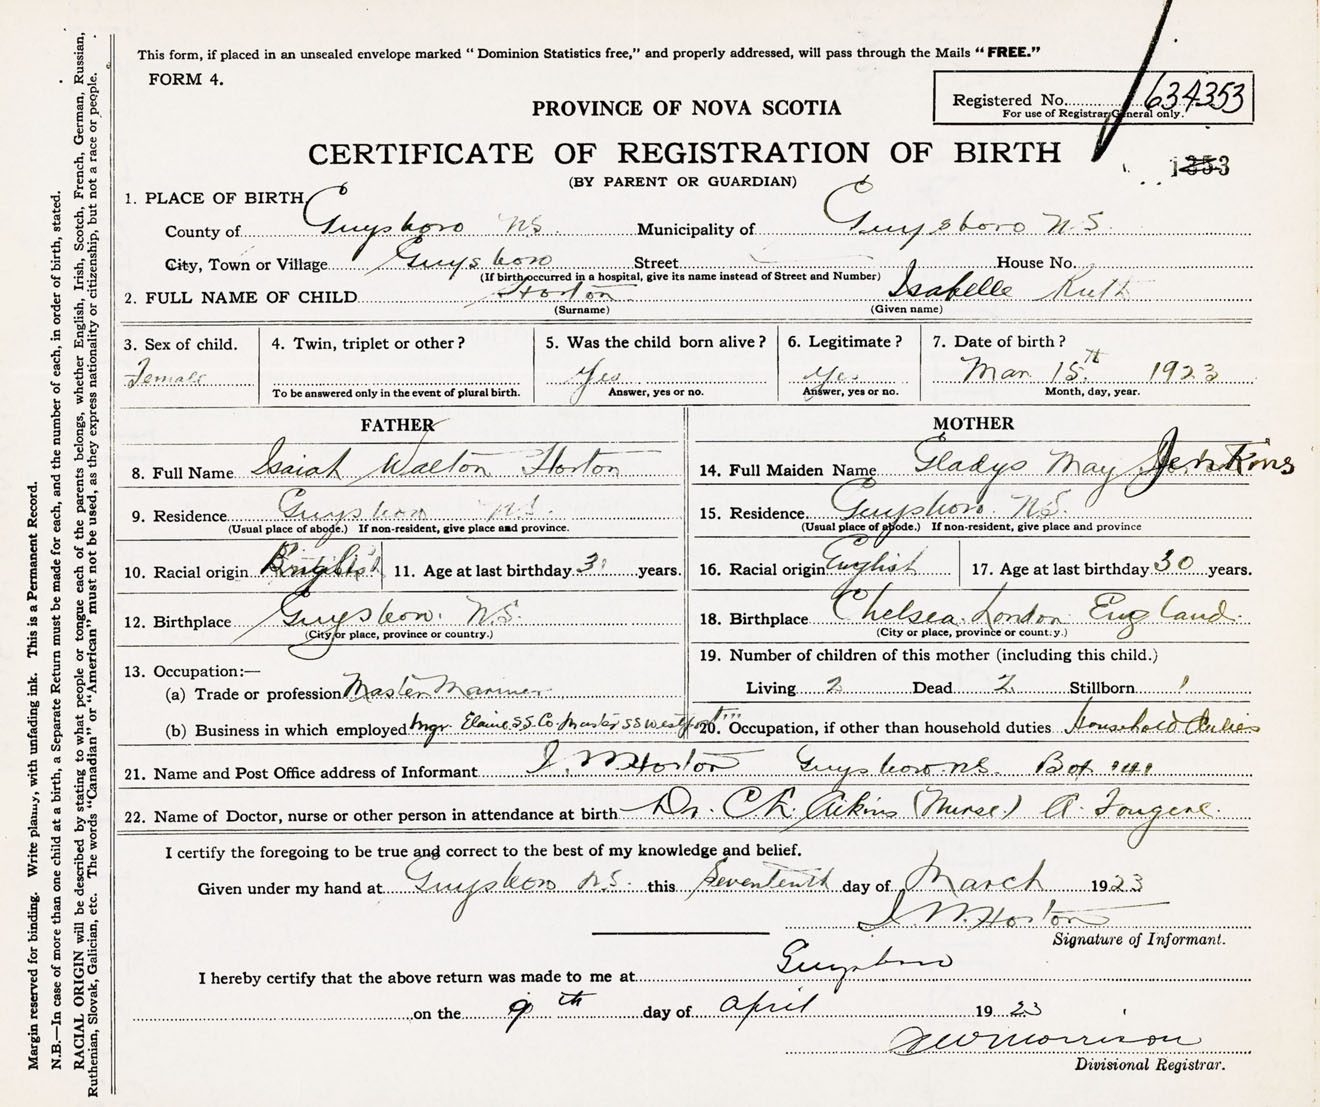 This form, if placed in an unsealed envelope marked "Dominion Statistics free," and properly addressed, will pass through the Mails "FREE."
FORM 4.
Registered No. 634353
For use of Registrar General only.
PROVINCE OF NOVA SCOTIA
CERTIFICATE OF REGISTRATION OF BIRTH
1353
(BY PARENT OR GUARDIAN)
1. PLACE OF BIRTH
County of Guysboro N.S. Municipality of Guysboro N.S.
City, Town or Village Guysboro Street House No.
(If birth occurred in a hospital, give its name instead of Street and Number)
2. FULL NAME OF CHILD Horton Isabelle Ruth
(Surname) (Given name)
3. Sex of child. 4. Twin, triplet or other? 5. Was the child born alive? 6. Legitimate? 7. Date of birth?
Female Yes Yes Mar 15th 1923
To be answered only in the event of plural birth. Answer, yes or no. Answer, yes or no. Month, day, year.
FATHER MOTHER
8. Full Name Isaiah Walton Horton 14. Full Maiden Name Gladys May Jenkins
9. Residence Guysboro N.S. 15. Residence Guysboro N.S.
(Usual place of abode.) If non-resident, give place and province. (Usual place of abode.) If non-resident, give place and province
10. Racial origin English 11. Age at last birthday years. 16. Racial origin English 17. Age at last birthday 30 years.
12. Birthplace Guysboro. N.S. 18. Birthplace Chelsea. London England.
(City or place, province or country.) (City or place, province or country.)
13. Occupation:— 19. Number of children of this mother (including this child.)
(a) Trade or profession Master Mariner Living 2 Dead 2 Stillborn
(b) Business in which employed Mgr. Elaine S.S. Co. Master SS Westport 20. Occupation, if other than household duties Household Duties
21. Name and Post Office address of Informant I. W. Horton Guysboro N.S. Box
22. Name of Doctor, nurse or other person in attendance at birth Dr. Aikins (Nurse.) A. Fougere.
I certify the foregoing to be true and correct to the best of my knowledge and belief.
Given under my hand at Guysboro N.S. this Seventeenth day of March 1923
I. W. Horton
Signature of Informant.
I hereby certify that the above return was made to me at Guysboro
on the 9th day of April 1923
Morrison
Divisional Registrar.
Margin reserved for binding. Write plainly, with unfading ink. This is a Permanent Record.
N.B.—In case of more than one child at a birth, a Separate Return must be made for each, and the number of each, in order of birth, stated.
RACIAL ORIGIN will be described by stating to what people or tongue each of the parents belongs, whether English, Irish, Scotch, French, German, Russian,
Ruthenian, Slovak, Galician, etc. The words "Canadian" or "American" must not be used, as they express nationality or citizenship, but not a race or people.